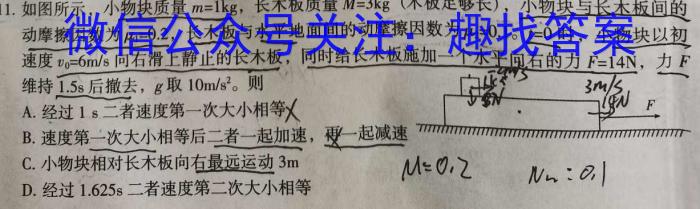 11. 如图所示，小物块质量 m=1kg，长木板质量 M=3kg（木板足够长），小物块与长木板间的
动摩擦因数为 0.2，长木板与水平地面间的动摩擦因数为 小物块以初
微信公众号关注：趣找答案
速度 v₀=6m/s 向右滑上静止的长木板，同时给长木板施加一个水平向右的力 F=14N，力 F
维持 1.5s 后撤去，g 取 10m/s²。则
A. 经过 1 s 二者速度第一次大小相等
B. 速度第一次大小相等后二者一起加速，再一起减速
C. 小物块相对长木板向右最远运动 3m
D. 经过 1.625s 二者速度第二次大小相等
3m/s
F
M=0.2
:0.1